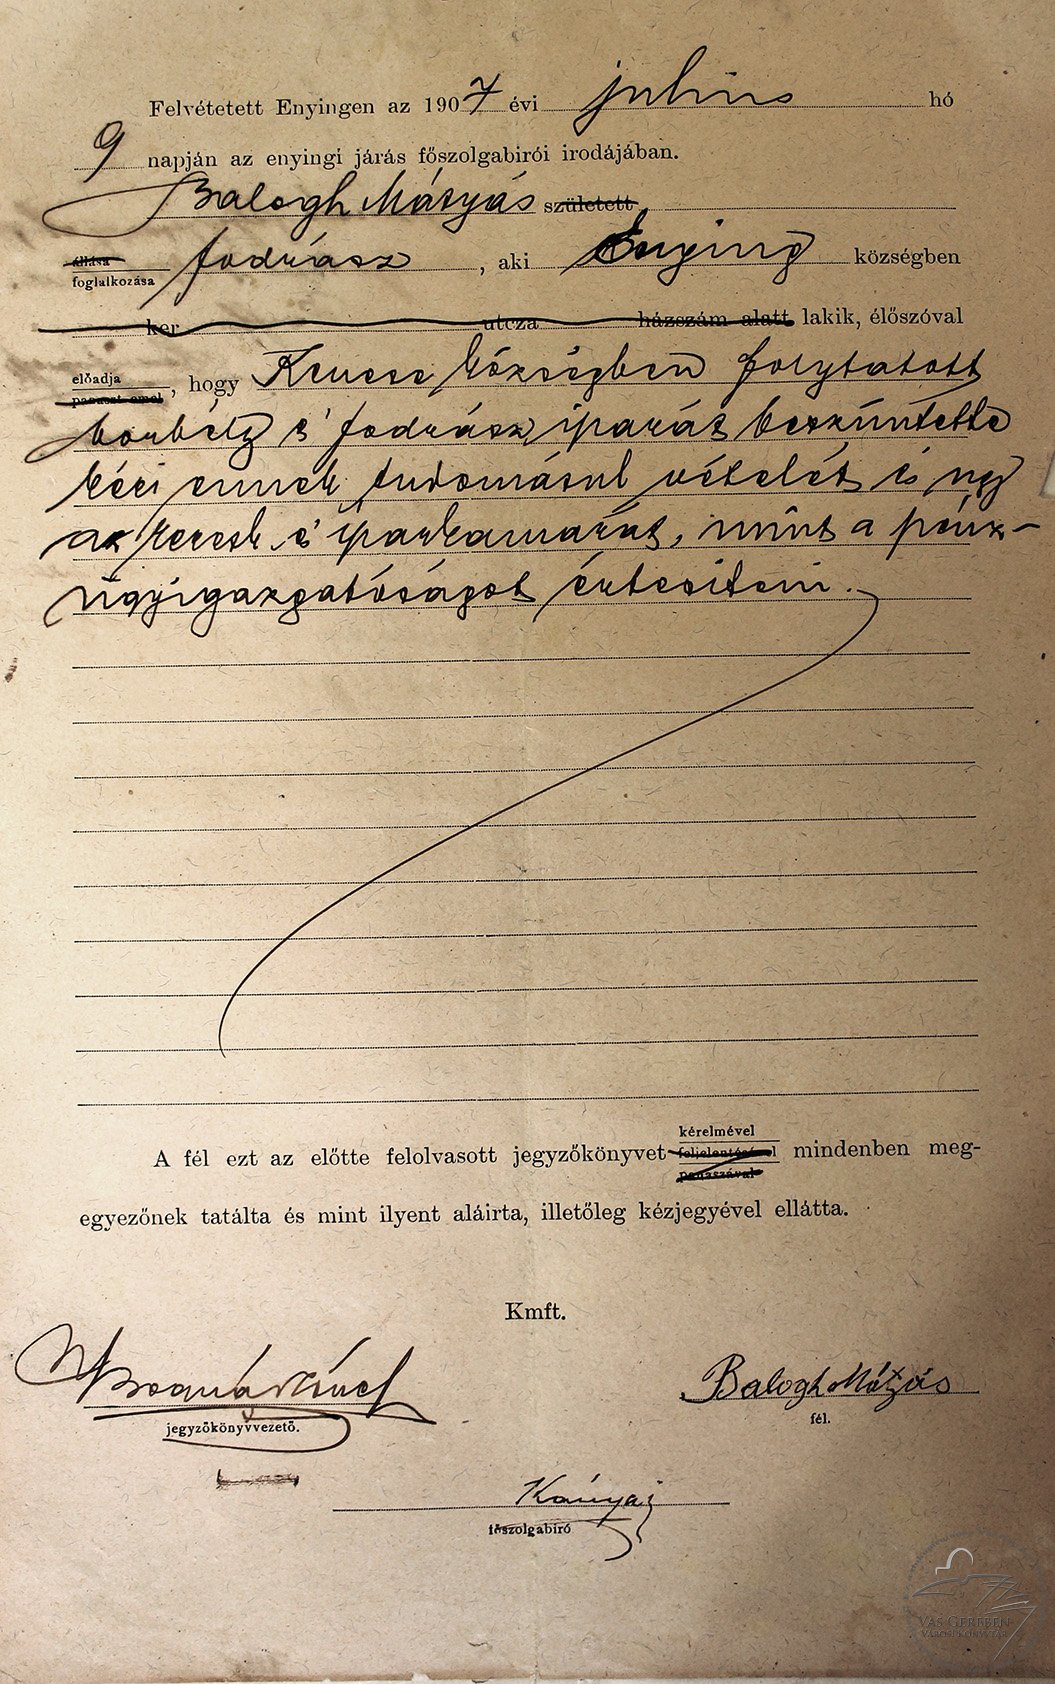 Felvétetett Enyingen az 1907 évi julius hó
9 napján az enyingi járás főszolgabirói irodájában.
Balogh Mátyás született
állása
foglalkozása fodrász, aki Enying községben
ker utcza házszám alatt lakik, élőszóval
előadja
panaszt emel, hogy Kenese községben folytatott
borbély és fodrász iparát beszüntette
kéri ennek tudomásul vételét és ugy
az keresk. és iparkamarát, mint a pénz-
ügyigazgatóságot értesiteni.
kérelmével
A fél ezt az előtte felolvasott jegyzőkönyvet feljelentésével mindenben meg-
panaszával
egyezőnek tatálta és mint ilyent aláirta, illetőleg kézjegyével ellátta.
Kmft.
Balogh Mátyás
jegyzőkönyvvezető.
fél.
főszolgabíró
VAS GEREBEN
VÁROSI KÖNYVTÁR